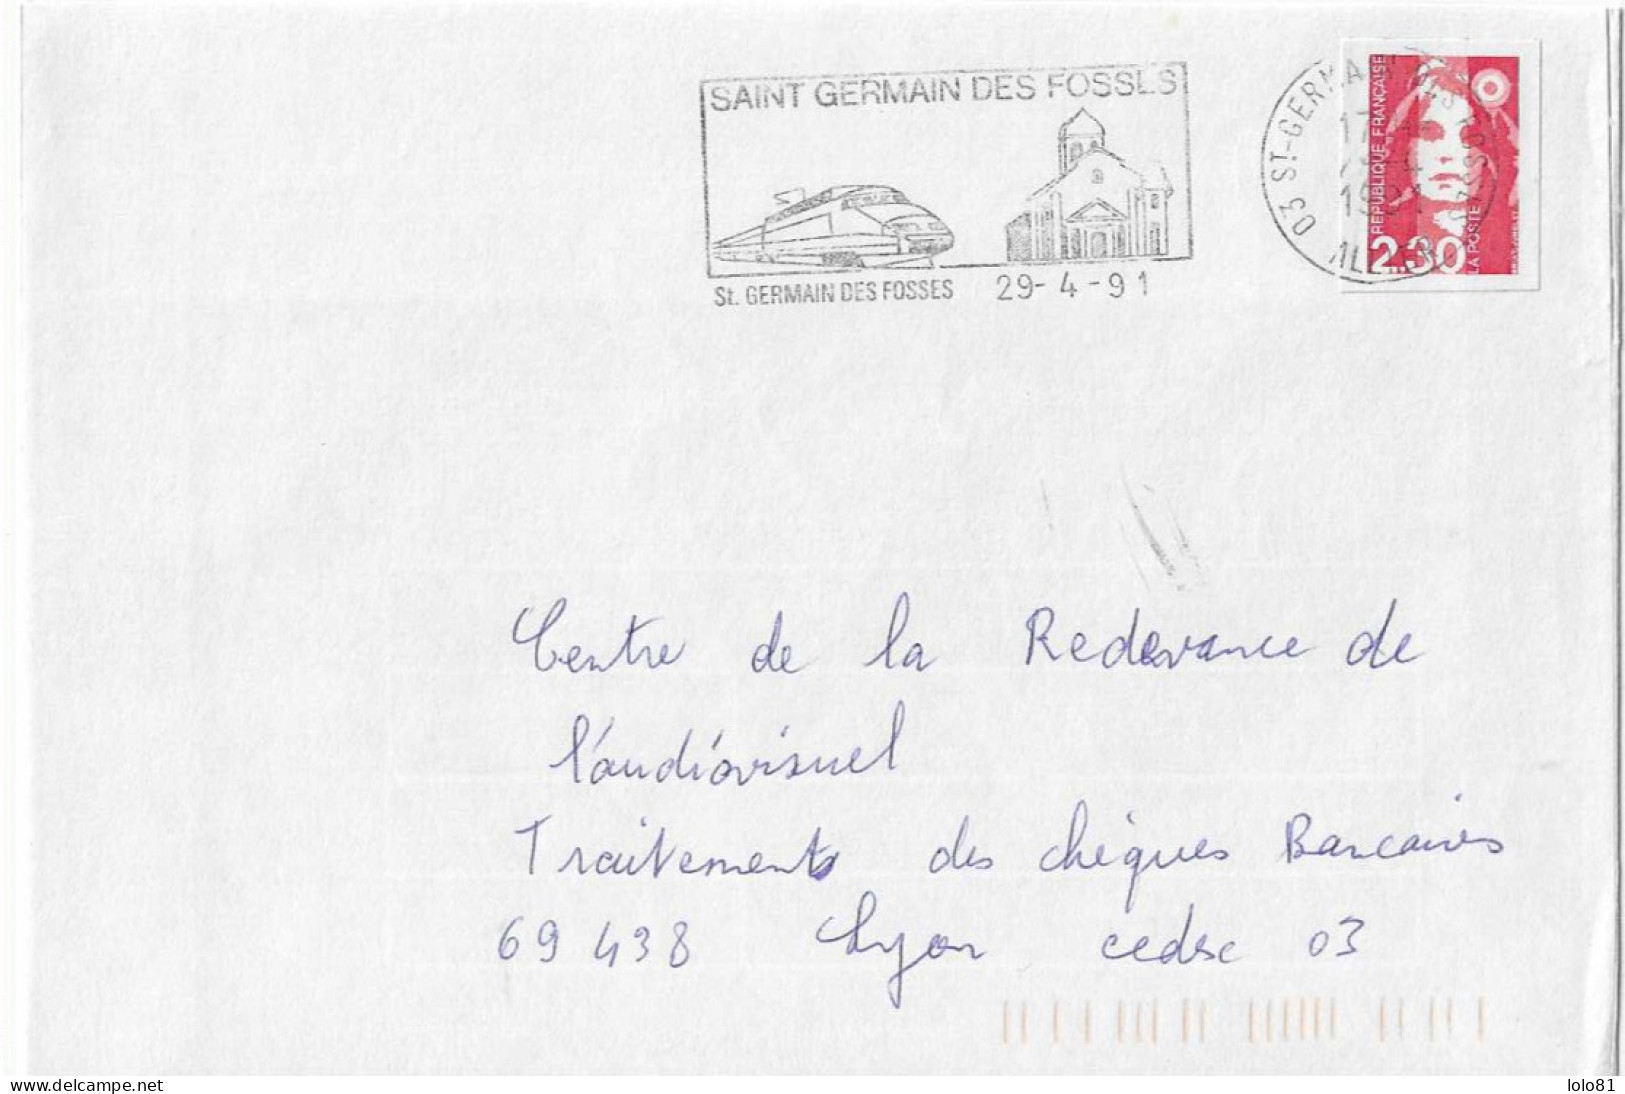 SAINT GERMAIN DES FOSSES
St. GERMAIN DES FOSSES 29-4-91
03 ST-GERMAIN DES FOSSES
17H
29-4
1991
ALLIER
REPUBLIQUE FRANÇAISE
2.30
LA POSTE
Centre de la Redevance de
l'audiovisuel
Traitements des chèques Bancaires
69 438 Lyon cedex 03
www.delcampe.net
lolo81